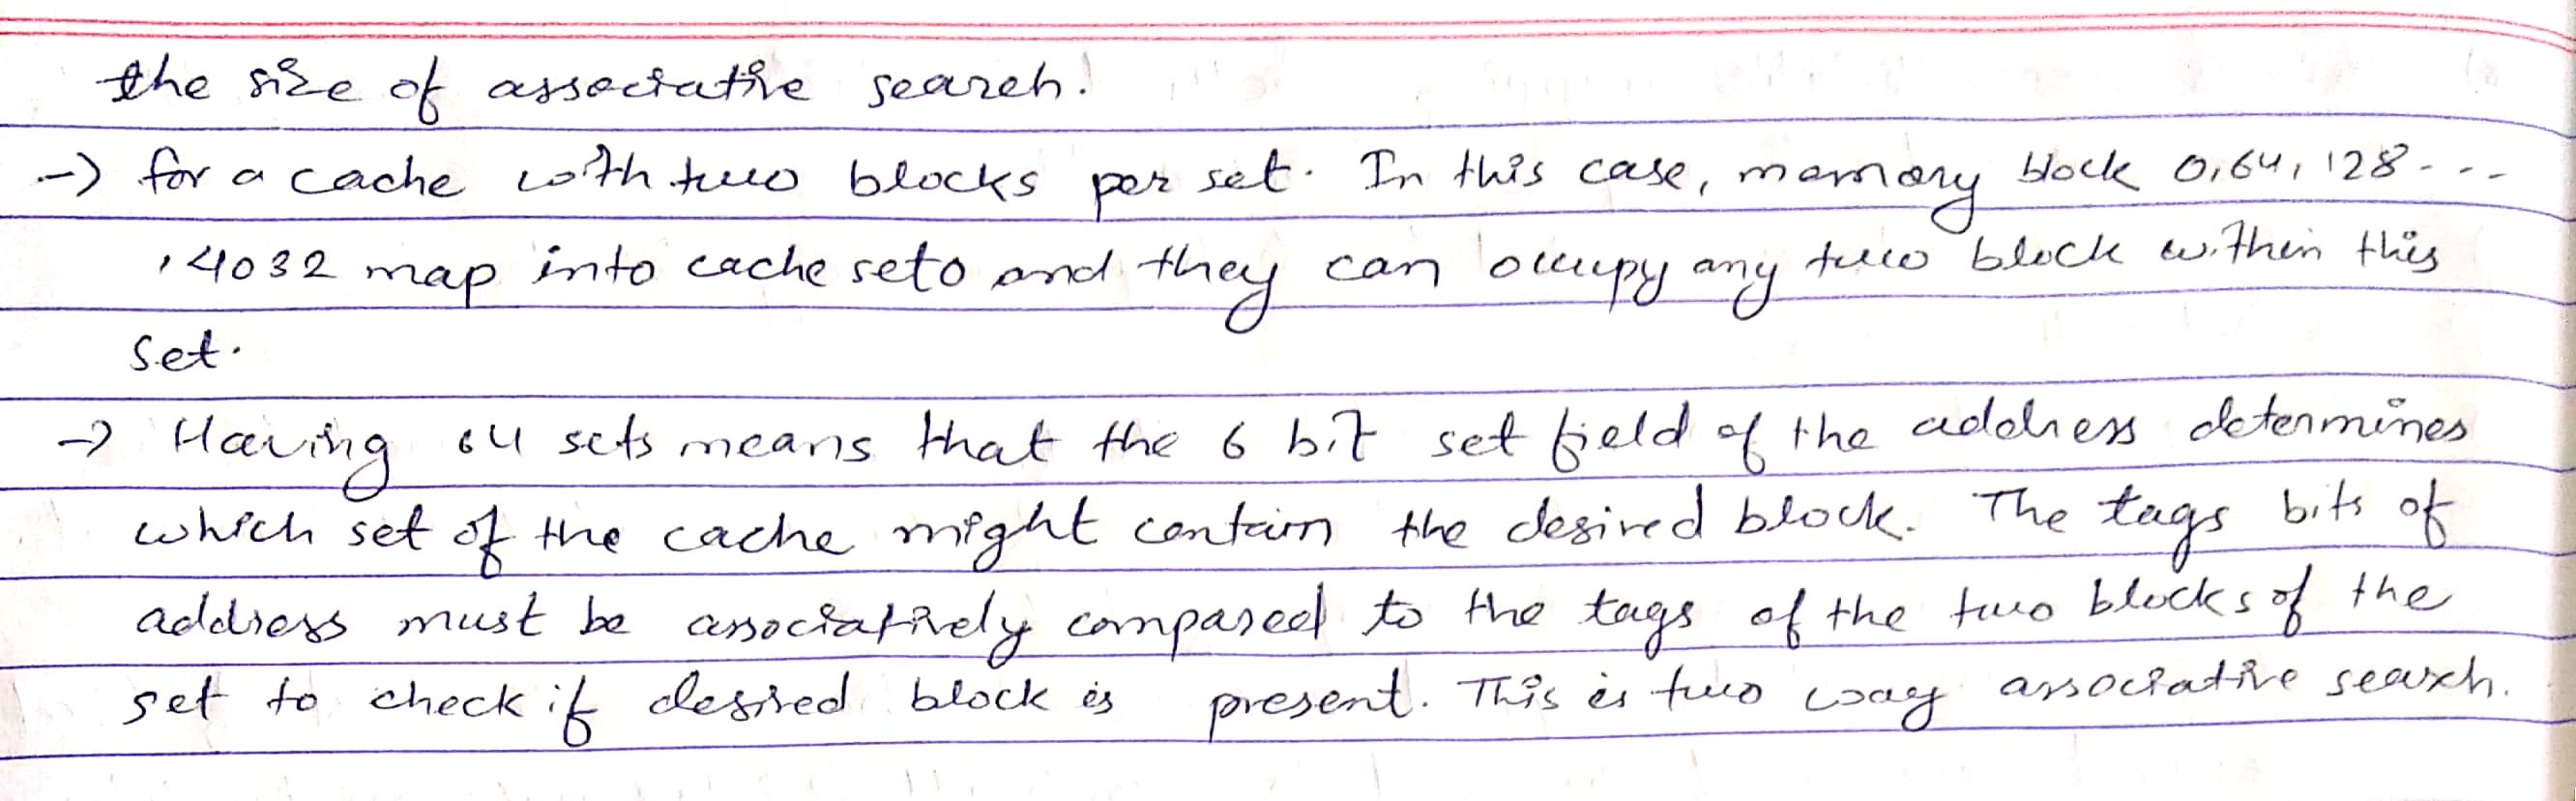 the size of associative search.
→ for a cache with two blocks per set. In this case, memory block 0, 64, 128 - - -
, 4032 map into cache set 0 and they can occupy any two block within this
set.
→ Having 64 sets means that the 6 bit set field of the address determines
which set of the cache might contain the desired block. The tags bits of
address must be associatively compared to the tags of the two blocks of the
set to check if desired block is present. This is two way associative search.